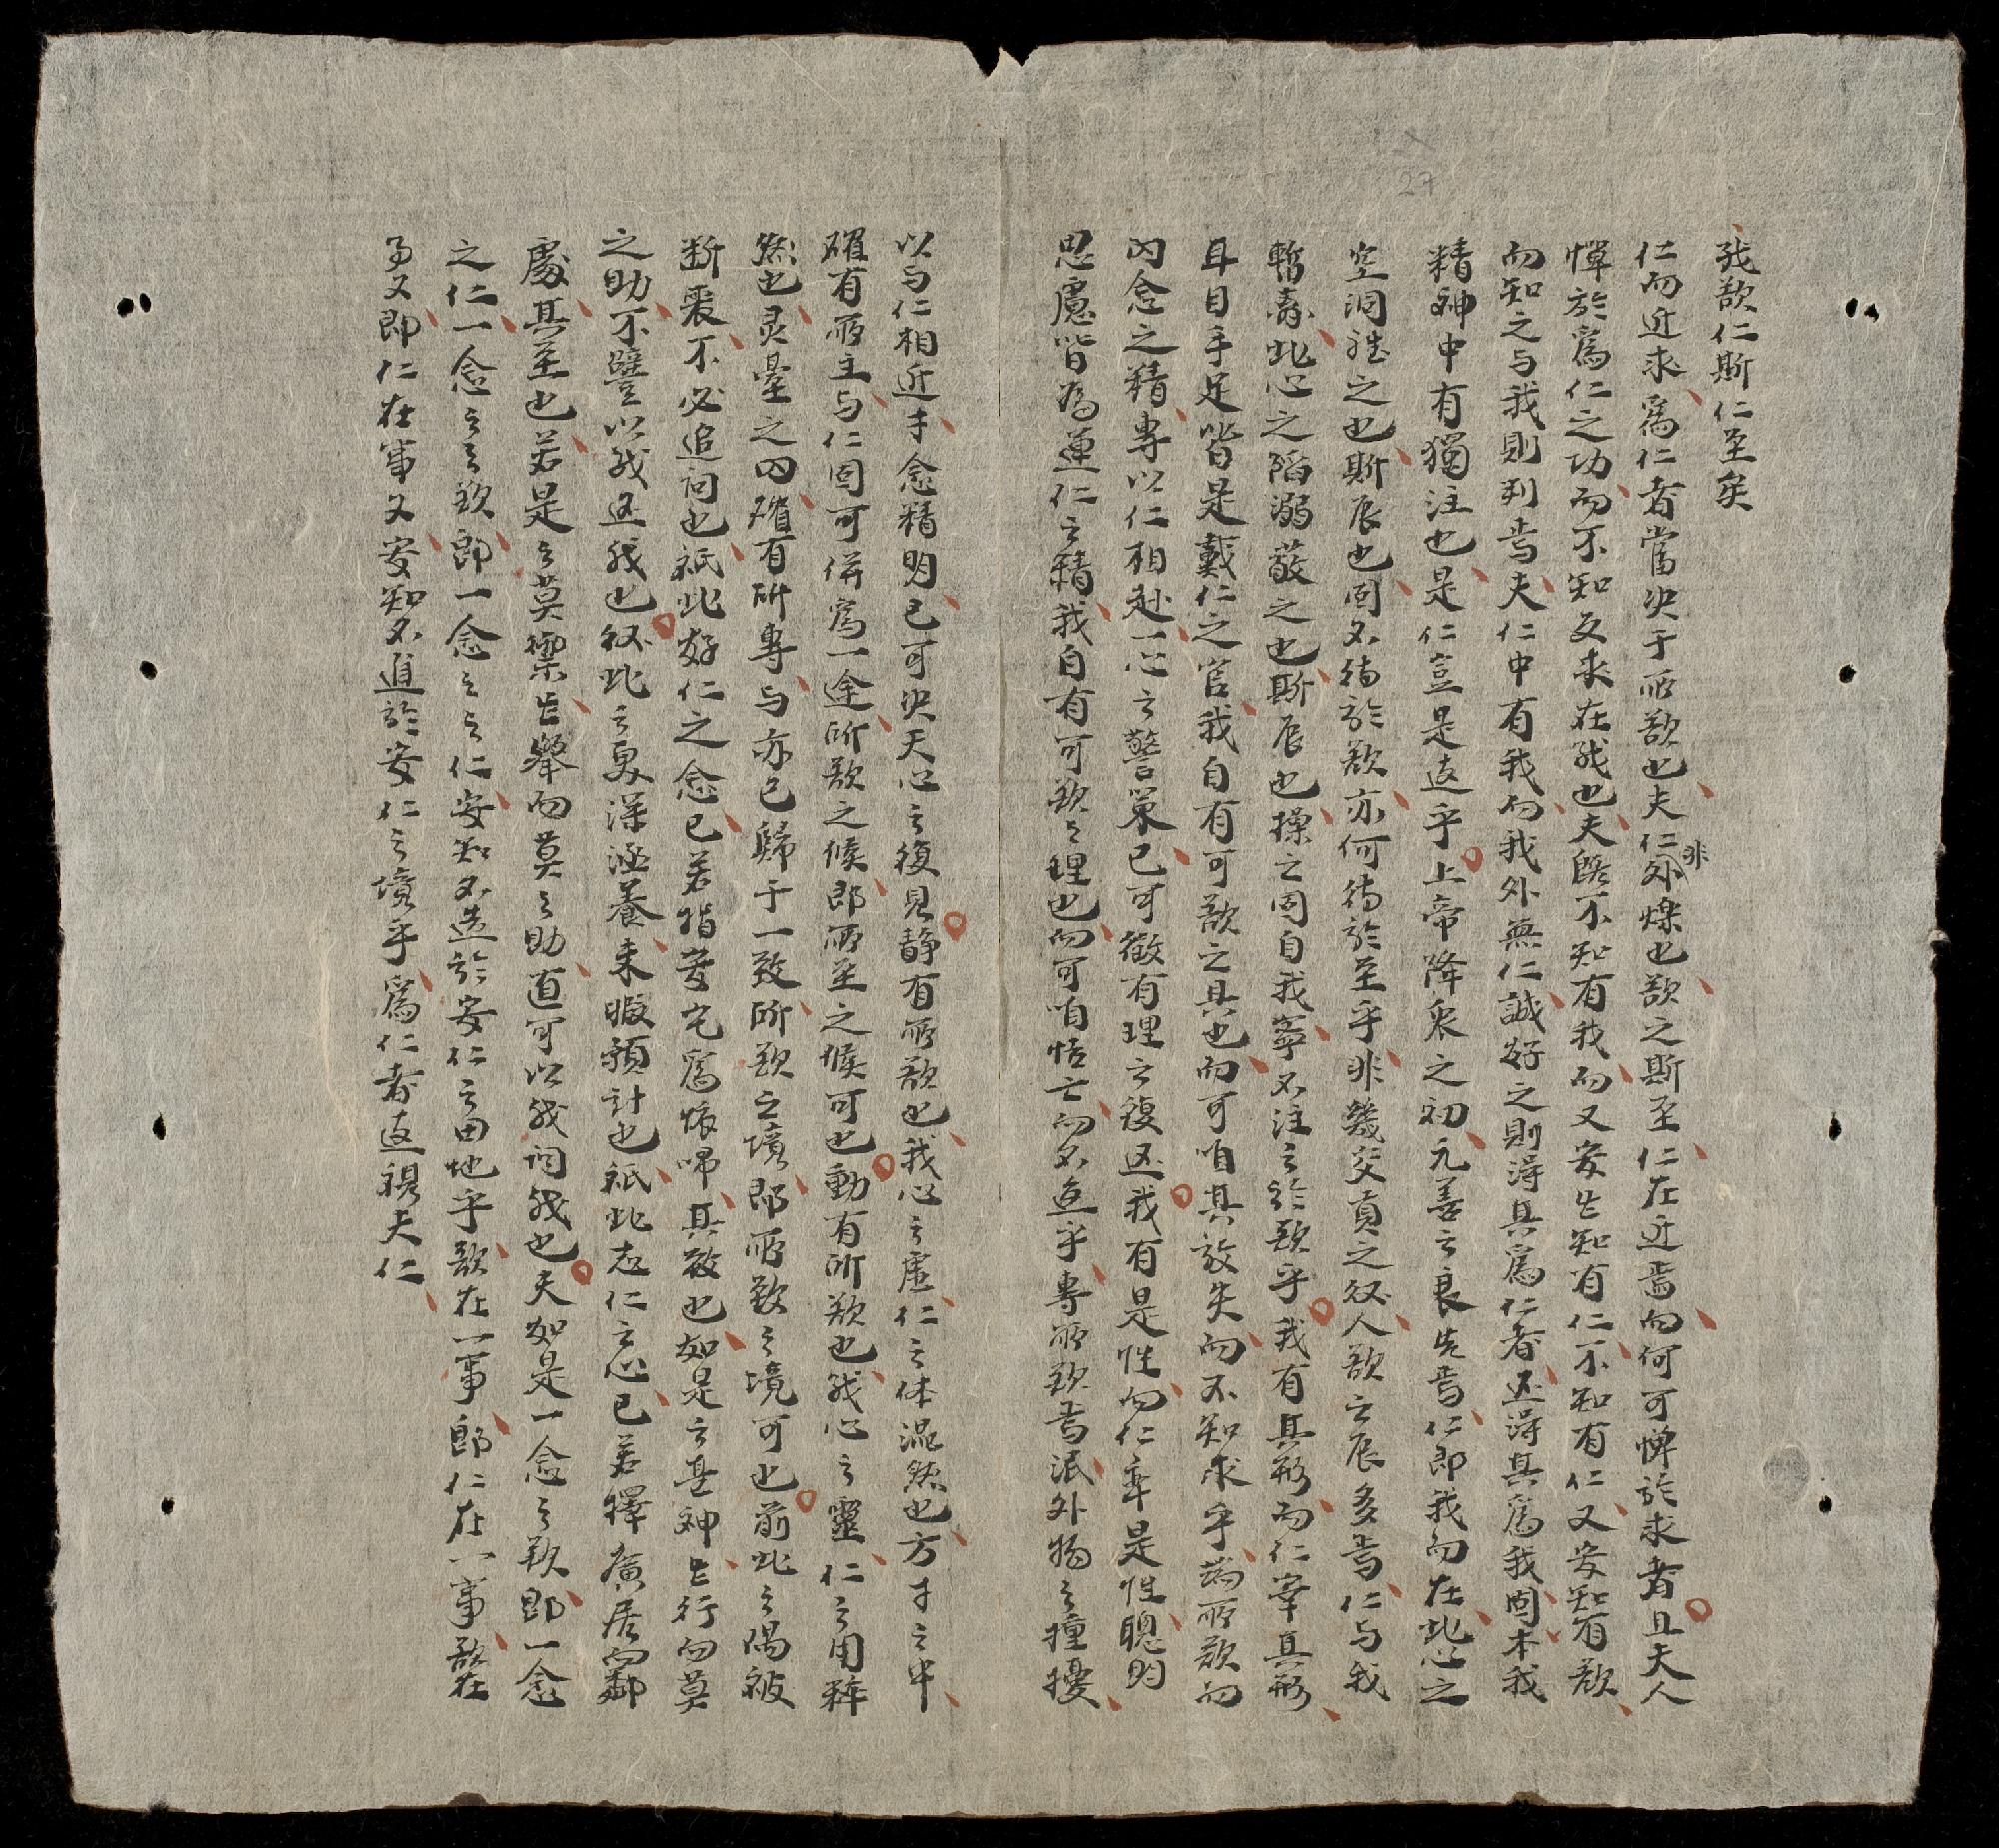 我欲仁斯仁至矣
仁而近求爲仁者當决于所欲也夫仁非外爍也欲之斯至仁在近焉而何可憚於求者且夫人
憚於爲仁之功而不知反求在我也夫旣不知有我而又安能知有仁不知有仁又安知有欲
而知之与我則判焉夫仁中有我而我外無仁誠好之則淂其爲仁者還淂其爲我固本我
精神中有獨注也是仁豈是遠乎上帝降衷之初元善之良先焉仁即我而在此心之
空洞雖之也斯辰也固不待於欲亦何待於至乎非幾交貢之後人欲之辰多焉仁与我
暫 此心之陷溺蔽之也斯辰也操之固自我寧不注之於欲乎我有具形而仁宰其形
耳目手足皆是戴仁之官我自有可欲之具也而可咱其放失而不知求乎端所欲而
内念之精專以仁相赴一心之警策已可徵有理之復还我有是性而仁率是性聰明
思慮皆爲運仁之精我自有可欲之理也而可咱恬亡而不直乎專所欲焉泯外物之撞擾
以与仁相近寸念精明已可决天心之復見靜有所欲也我心之虛仁之体混然也方寸之中
確有所主与仁固可併爲一途所欲之候即所至之候可也動有所欲也我心之靈仁之用粹
然也灵臺之内確有所專与亦已歸于一致所欲之境即所致之境可也前此之隔被
断喪不必追问也祇此好仁之念已若指安宅爲依歸其致也如是之甚神 行而莫
之助不譬以我还我也後此之更深涵養未暇預計也祇此志仁之心已若擇廣居而鄰
處其至也若是之莫禦 舉而莫之助直可以我詞我也夫如是一念之欲即一念
之仁一念之之欲即一念之之仁安知不造於安仁之田地乎欲在一事即仁在一事欲在
萬又即仁在事又安知不道於安仁之境乎爲仁者返視夫仁